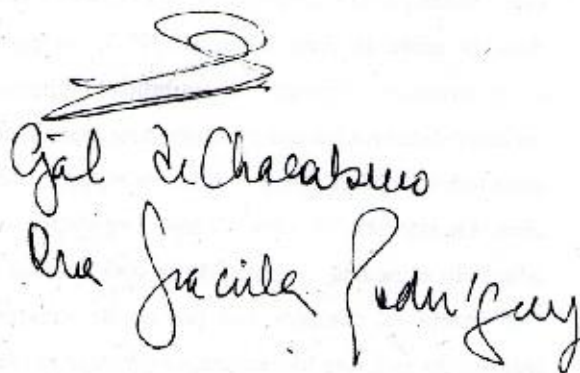 Gral de Chacabuco
Dra Graciela Rodríguez